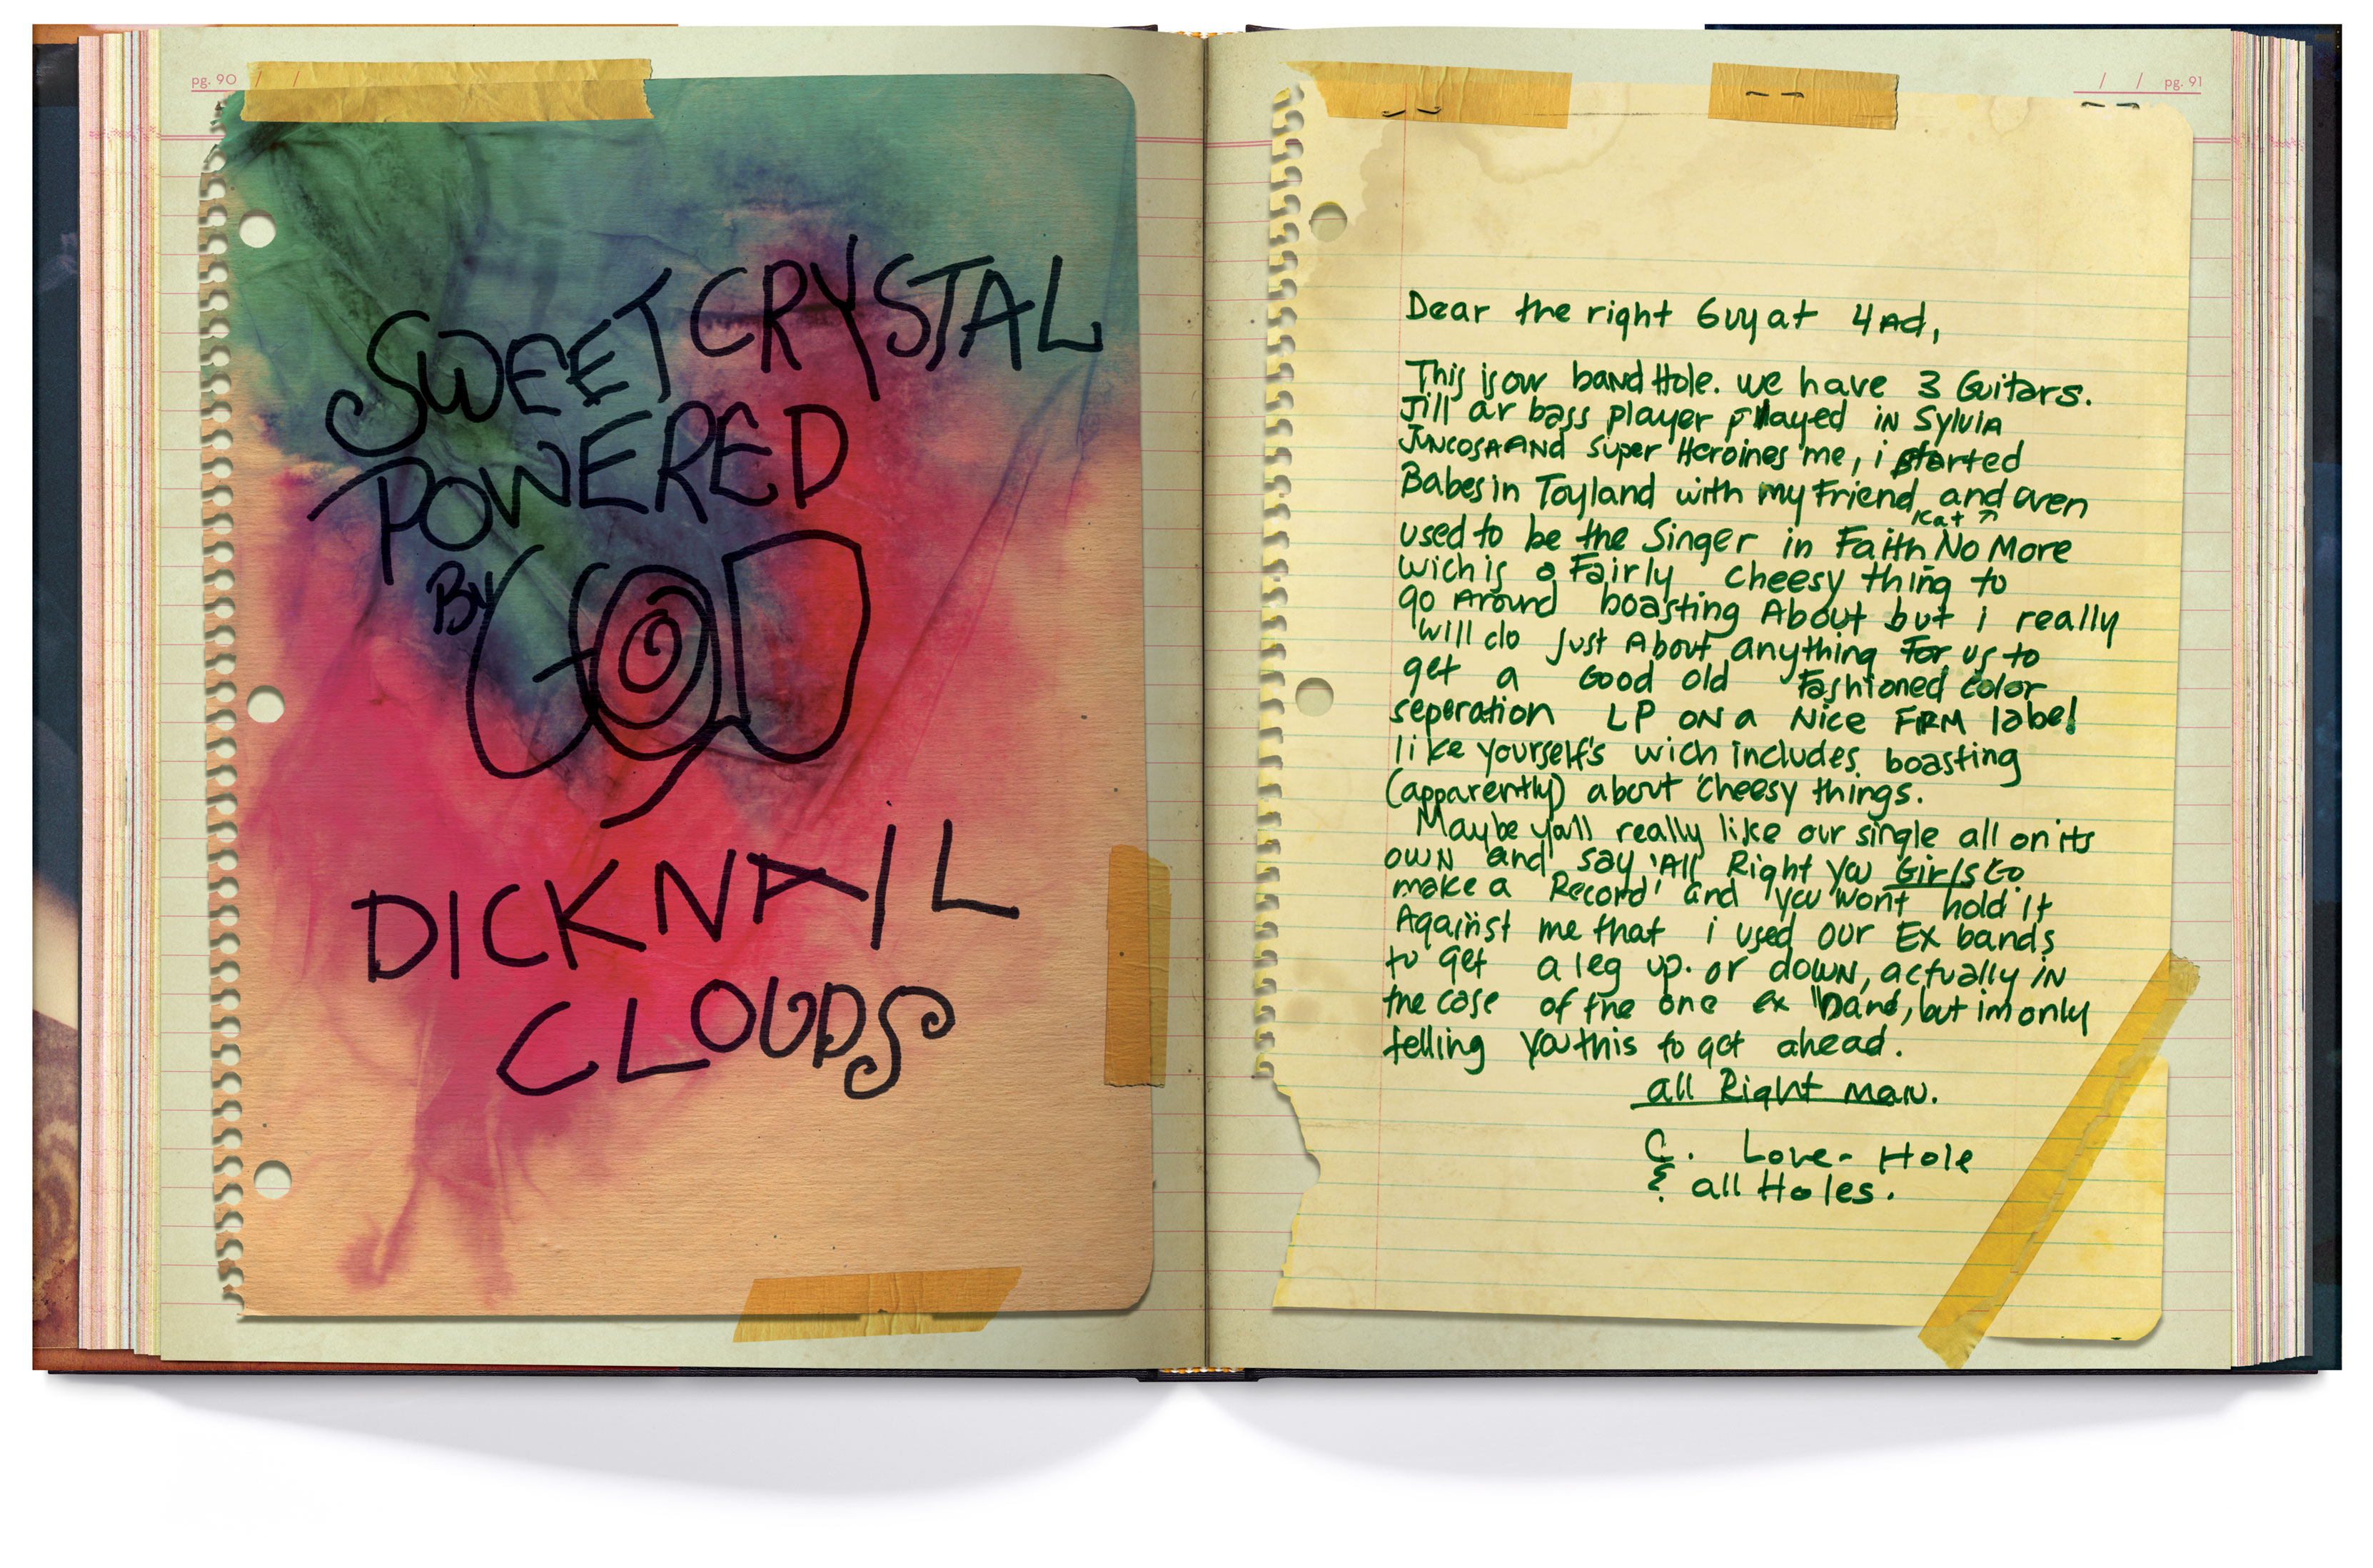 pg. 90 / /
SWEET CRYSTAL
POWERED
By GOD
DICKNAIL
CLOUDS
/ / pg. 91
Dear the right Guy at 4Ad,
This is our band Hole. we have 3 Guitars.
Jill ar bass player played in Sylvia
Juncosa and Super Heroines me, i started
Babes in Toyland with my Friend, and even
Kat ↗
used to be the Singer in Faith No More
wich is a Fairly cheesy thing to
go Around boasting About but i really
will do just About anything For us to
get a Good old Fashioned color
seperation LP on a Nice FIRM label
like yourself's wich includes boasting
(apparently) about cheesy things.
Maybe ya'll really like our single all on its
own and say 'All Right you Girls Go
make a Record' and you won't hold it
Against me that i used our Ex bands
to get a leg up. or down, actually in
the case of the one ex band, but im only
telling you this to get ahead.
all Right man.
C. Love - Hole
& all Holes.